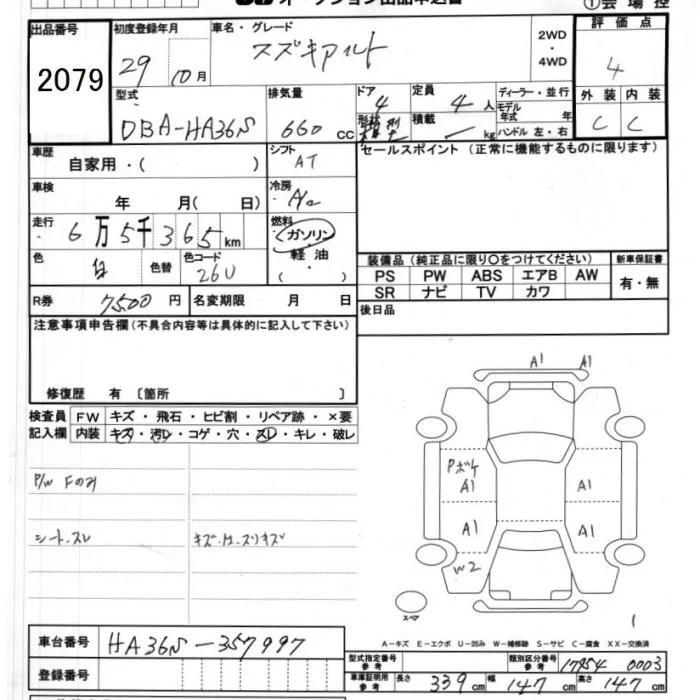 オークション出品申込書
①会場控
出品番号 初度登録年月 車名・グレード 評価点
2079 29 10月 スズキアルト 2WD・4WD 4
型式 排気量 ドア 定員 ディーラー・並行 外装 内装
DBA-HA36S 660cc 4 4人 モデル年式 年 C C
形状 積載 kg ハンドル 左・右
車歴 自家用・( ) シフト AT セールスポイント(正常に機能するものに限ります)
車検 年 月( 日) 冷房 A/C
走行 6万5千365km 燃料 ガソリン・軽油 ( ・ )
装備品(純正品に限り○をつけてください) 新車保証書
色 白 色替 色コード 26U PS PW ABS エアB AW 有・無
SR ナビ TV カワ
R券 7500円 名変期限 月 日 後日品
注意事項申告欄(不具合内容等は具体的に記入して下さい)
修復歴 有 〔箇所 〕
検査員 FW キズ・飛石・ヒビ割・リペア跡・×要
記入欄 内装 キズ・汚レ・コゲ・穴・スレ・キレ・破レ
P/W Fのみ
シート.スレ
A1 A1
Pボケ
A1 A1
A1 A1
W2
スペア
1
A-キズ E-エクボ U-凹み W-補修跡 S-サビ C-腐食 XX-交換済
車台番号 HA36S-357997
型式指定番号 参考 類別区分番号 参考 17954 0003
登録番号
車庫証明用 参考 長さ 339cm 幅 147cm 高さ 147cm